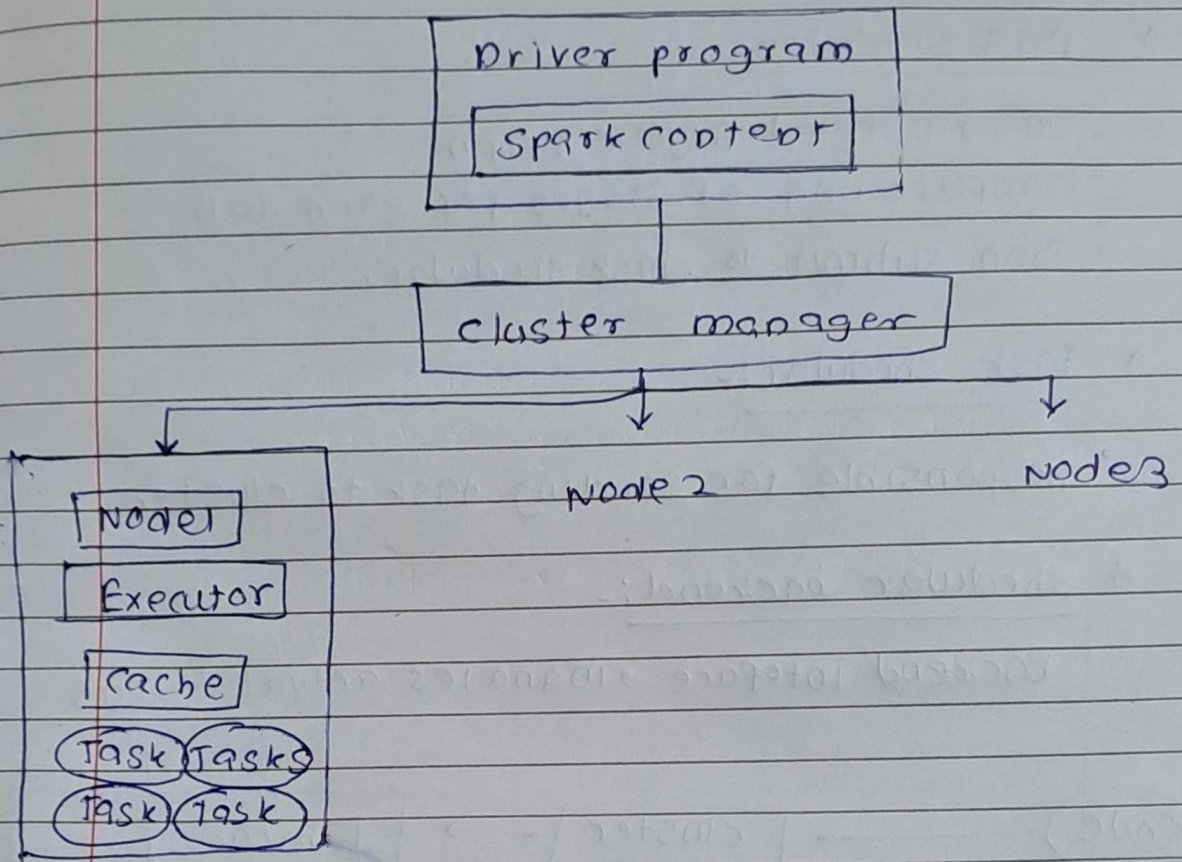 Driver program
Spark context
cluster manager
Node1
Node2
Node3
Executor
cache
Task Tasks
Task Task